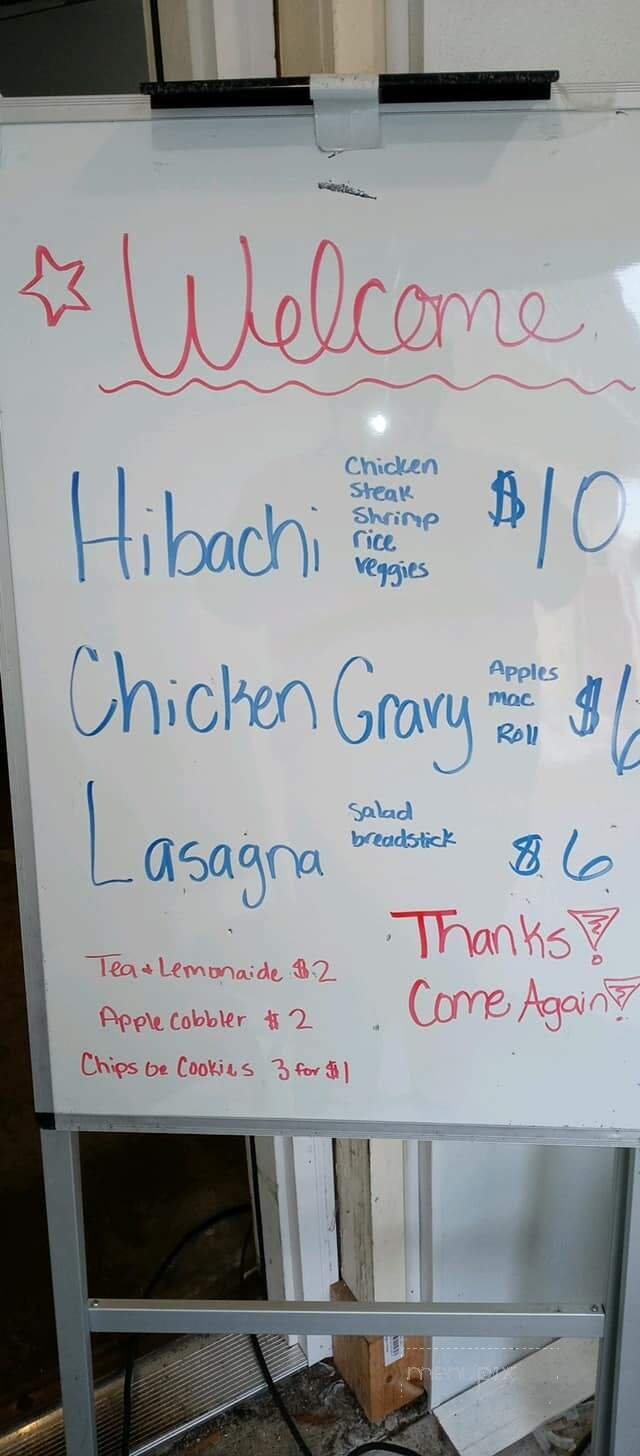 Welcome
Hibachi Chicken Steak Shrimp rice veggies $10
Chicken Gravy Apples mac Roll $6
Lasagna Salad breadstick $6
Thanks!
Come Again!
Tea & Lemonaide $2
Apple Cobbler $2
Chips or Cookies 3 for $1
menupix